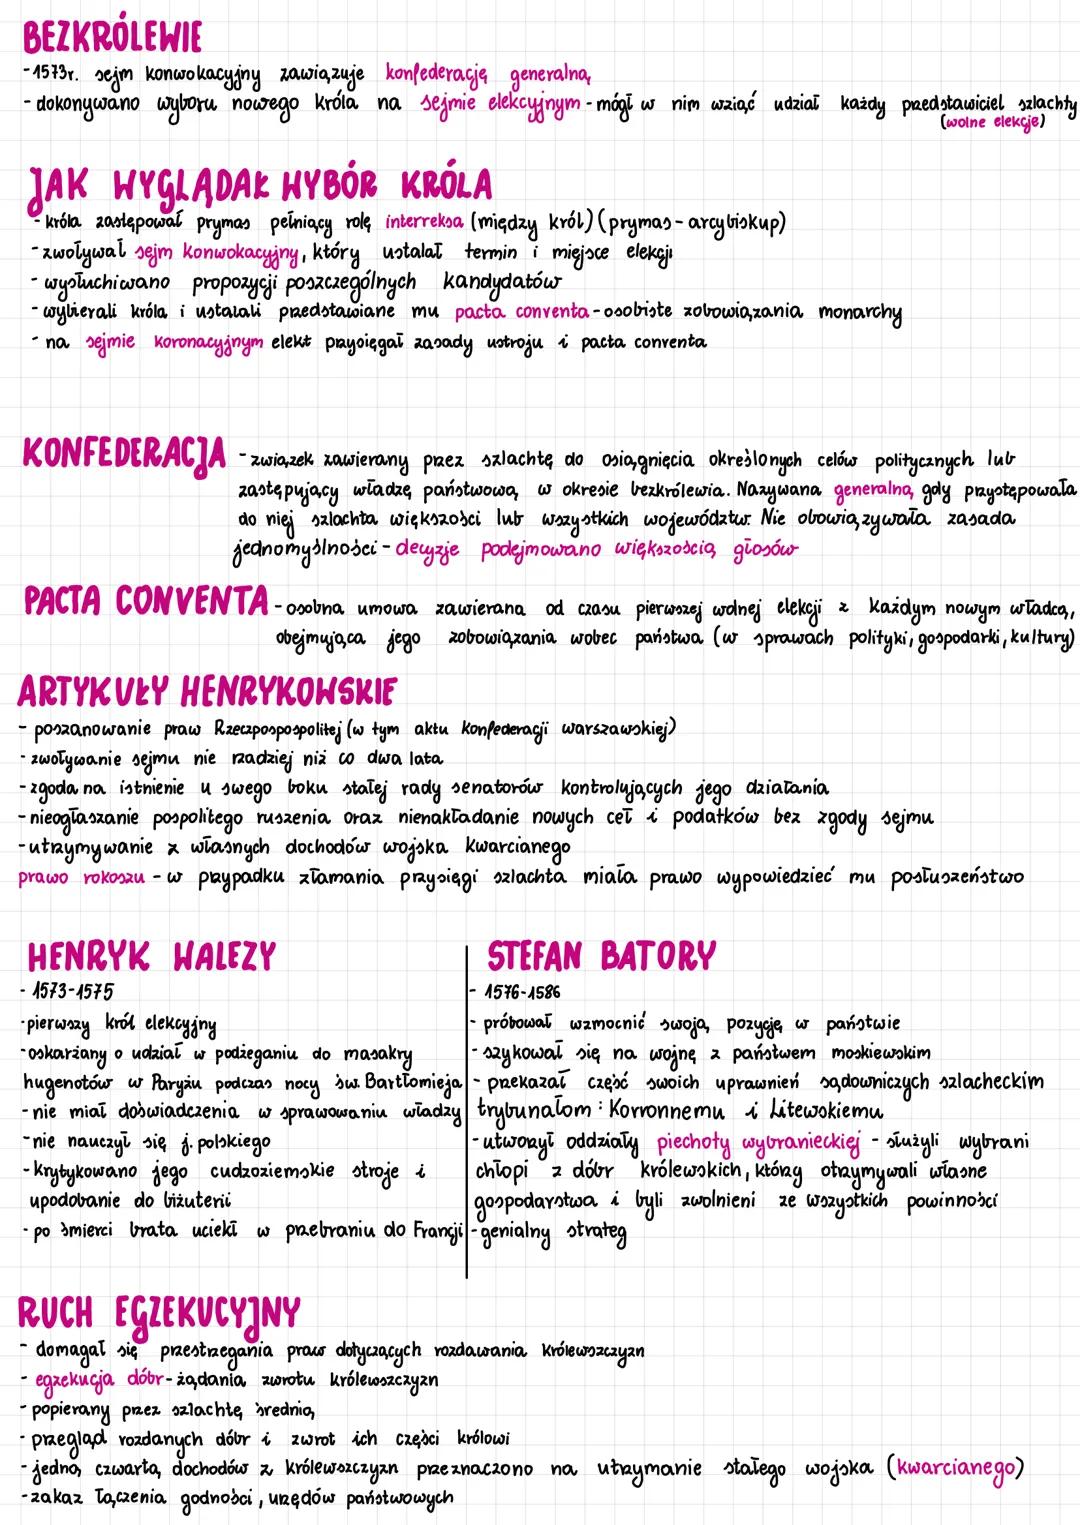 BEZKRÓLEWIE
-1573r. sejm konwokacyjny zawiązuje konfederację generalną
- dokonywano wyboru nowego króla na sejmie elekcyjnym - mógł w nim wziąć udział każdy przedstawiciel szlachty
(wolne elekcje)
JAK WYGLĄDAŁ WYBÓR KRÓLA
- króla zastępował prymas pełniący rolę interreksa (między król) (prymas - arcybiskup)
- zwoływał sejm konwokacyjny, który ustalał termin i miejsce elekcji
- wysłuchiwano propozycji poszczególnych kandydatów
- wybierali króla i ustalali przedstawiane mu pacta conventa - osobiste zobowiązania monarchy
- na sejmie koronacyjnym elekt przysięgał zasady ustroju i pacta conventa
KONFEDERACJA - związek zawierany przez szlachtę do osiągnięcia określonych celów politycznych lub
zastępujący władzę państwową w okresie bezkrólewia. Nazywana generalną, gdy przystępowała
do niej szlachta większości lub wszystkich województw. Nie obowiązywała zasada
jednomyślności - decyzje podejmowano większością głosów
PACTA CONVENTA - osobna umowa zawierana od czasu pierwszej wolnej elekcji z każdym nowym władcą,
obejmująca jego zobowiązania wobec państwa (w sprawach polityki, gospodarki, kultury)
ARTYKUŁY HENRYKOWSKIE
- poszanowanie praw Rzeczpospospolitej (w tym aktu konfederacji warszawskiej)
- zwoływanie sejmu nie rzadziej niż co dwa lata
- zgoda na istnienie u swego boku stałej rady senatorów kontrolujących jego działania
- nieogłaszanie pospolitego ruszenia oraz nienakładanie nowych ceł i podatków bez zgody sejmu
- utrzymywanie z własnych dochodów wojska kwarcianego
prawo rokoszu - w przypadku złamania przysięgi szlachta miała prawo wypowiedzieć mu posłuszeństwo
HENRYK WALEZY
- 1573-1575
- pierwszy król elekcyjny
- oskarżany o udział w podżeganiu do masakry
hugenotów w Paryżu podczas nocy św. Bartłomieja
- nie miał doświadczenia w sprawowaniu władzy
- nie nauczył się j. polskiego
- krytykowano jego cudzoziemskie stroje i
upodobanie do biżuterii
- po śmierci brata uciekł w przebraniu do Francji
STEFAN BATORY
- 1576-1586
- próbował wzmocnić swoją pozycję w państwie
- szykował się na wojnę z państwem moskiewskim
- przekazał część swoich uprawnień sądowniczych szlacheckim
trybunałom: Korronnemu i Litewskiemu
- utworzył oddziały piechoty wybranieckiej - służyli wybrani
chłopi z dóbr królewskich, którzy otrzymywali własne
gospodarstwa i byli zwolnieni ze wszystkich powinności
- genialny strateg
RUCH EGZEKUCYJNY
- domagał się przestrzegania praw dotyczących rozdawania królewszczyzn
- egzekucja dóbr - żądania zwrotu królewszczyzn
- popierany przez szlachtę średnią
- przegląd rozdanych dóbr i zwrot ich części królowi
- jedną czwartą dochodów z królewszczyzn przeznaczono na utrzymanie stałego wojska (kwarcianego)
- zakaz łączenia godności, urzędów państwowych